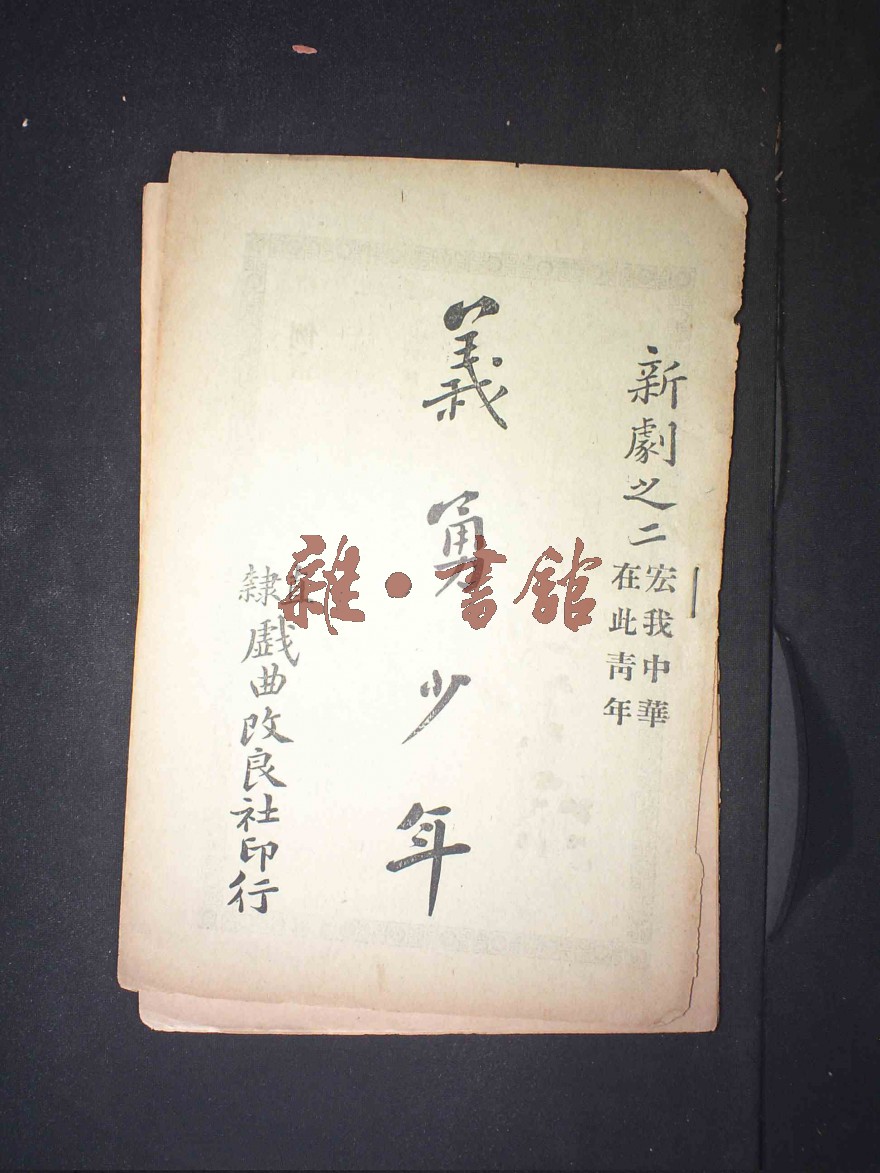 新劇之二
宏我中華
在此靑年
義勇少年
直隸戲曲改良社印行
雜•書館